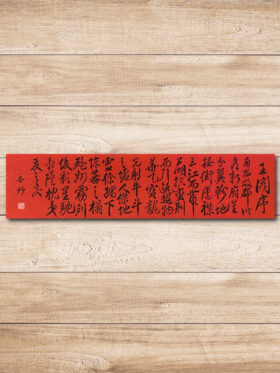 王閣序
南昌故郡洪
都新府星
分翼軫地
接衡廬襟
三江而帶
五湖控蠻荊
而引甌越物
華天寶龍
光射牛斗
之墟人傑地
靈徐孺下
陳蕃之榻
雄州霧列
俊彩星馳
臺隍枕夷
夏之交